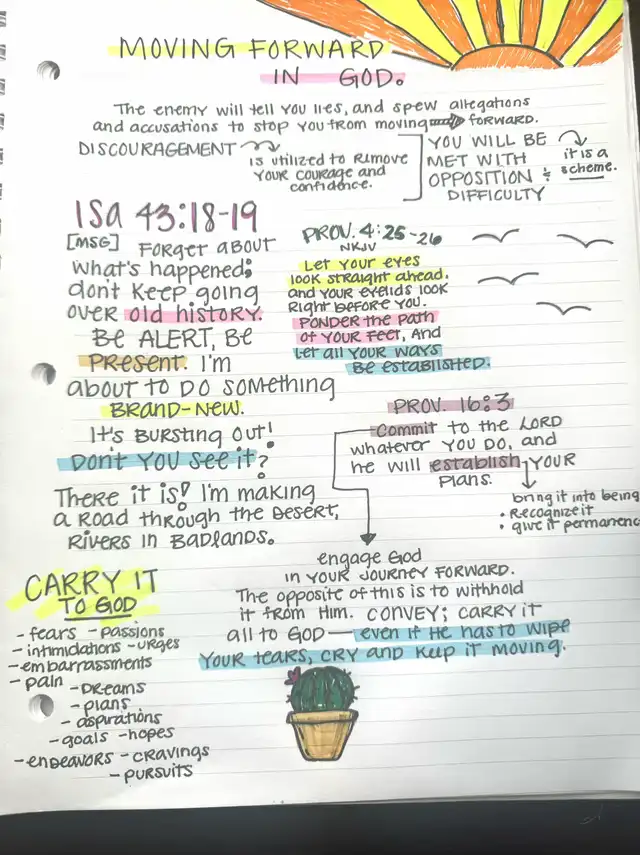 MOVING FORWARD
IN GOD.
The enemy will tell you lies, and spew allegations
and accusations to stop you from moving forward.
DISCOURAGEMENT
is utilized to remove
your courage and
confidence.
YOU WILL BE
MET WITH
OPPOSITION &
DIFFICULTY
it is a
scheme.
Isa 43:18-19
[MSG] Forget about
what's happened;
don't keep going
over old history.
Be ALERT, Be
PRESENT. I'm
about to do something
BRAND-NEW.
It's bursting out!
Don't you see it?
There it is! I'm making
a road through the desert,
rivers in badlands.
PROV. 4:25-26
NKJV
Let your eyes
look straight ahead.
and your eyelids look
right before you.
Ponder the path
of your feet, and
let all your ways
be established.
PROV. 16:3
Commit to the LORD
whatever you do, and
he will establish your
plans.
bring it into being
• recognize it
• give it permanenc
engage God
in your journey forward.
The opposite of this is to withhold
it from Him. Convey; carry it
all to God — even if He has to wipe
your tears, cry and keep it moving.
CARRY IT
TO GOD
- fears - passions
- intimidations - urges
- embarrassments
- pain
- dreams
- plans
- aspirations
- goals - hopes
- endeavors - cravings
- pursuits